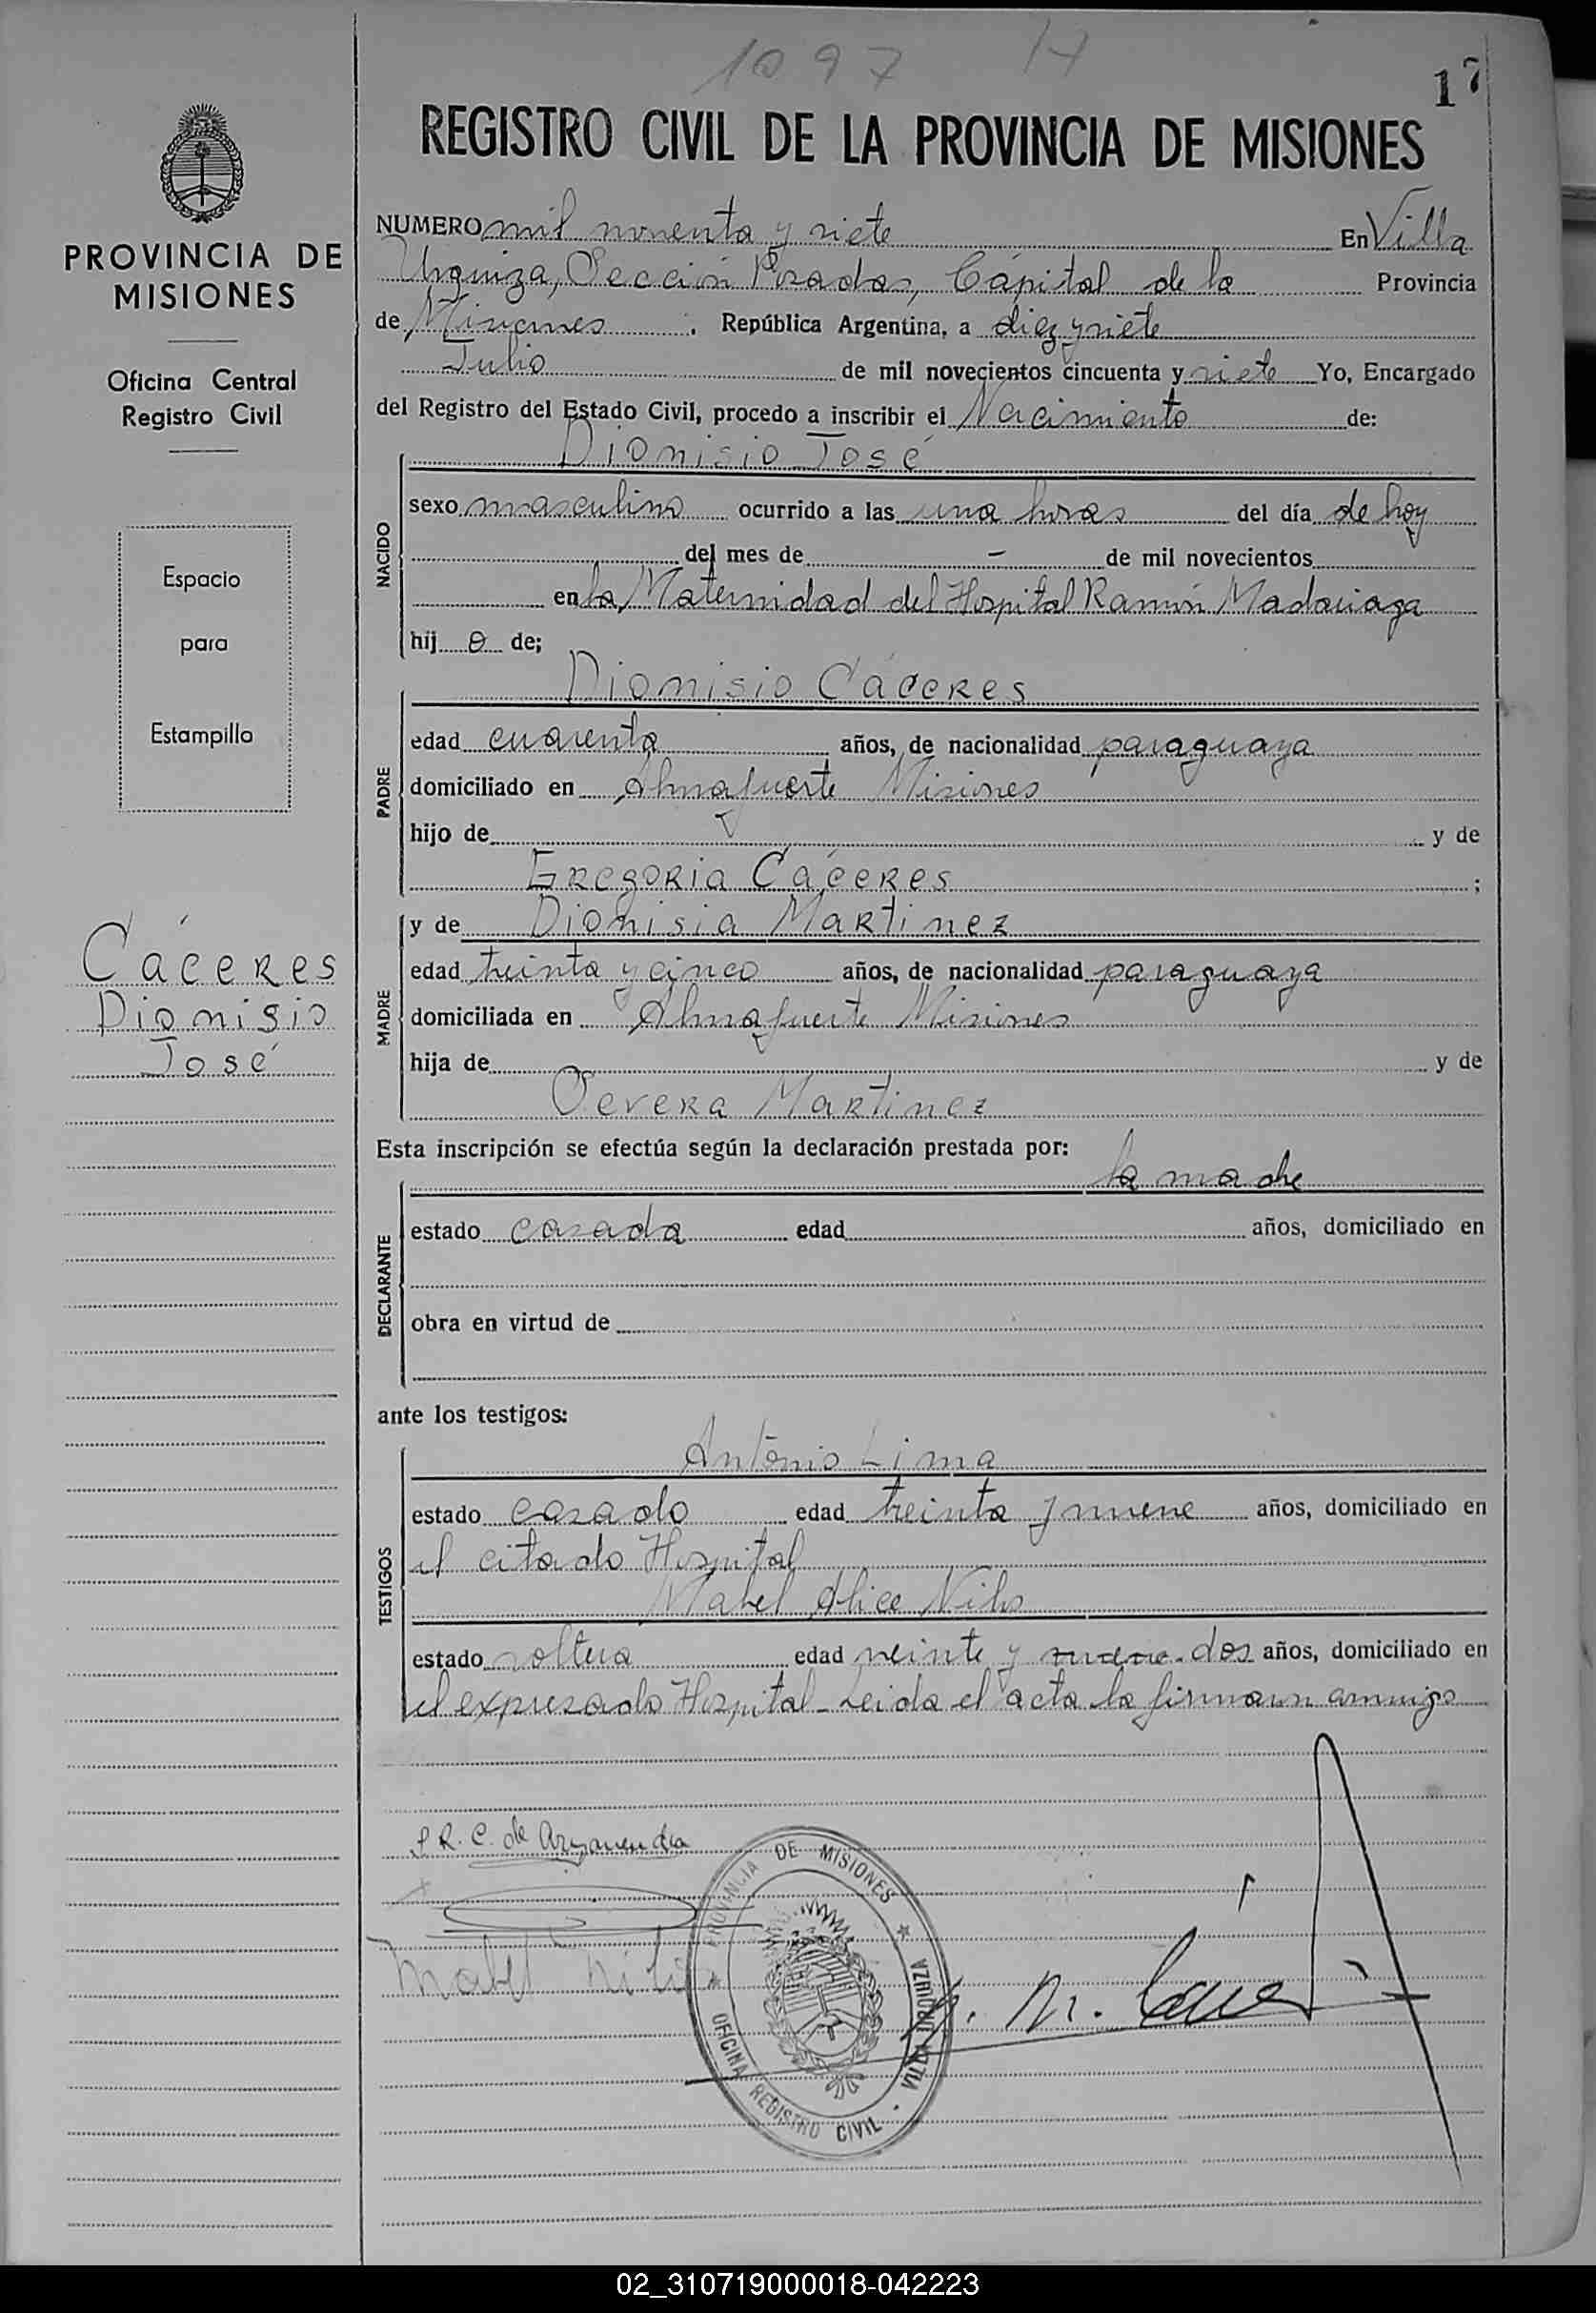 1097 H
17
REGISTRO CIVIL DE LA PROVINCIA DE MISIONES
PROVINCIA DE
MISIONES
Oficina Central
Registro Civil
Espacio
para
Estampilla
Cáceres
Dionisio
José
NUMERO mil noventa y siete En Villa
Urquiza, Sección Posadas, Cápital de la Provincia
de Misiones . República Argentina, a diez y siete
Julio de mil novecientos cincuenta y siete Yo, Encargado
del Registro del Estado Civil, procedo a inscribir el Nacimiento de:
Dionisio José
NACIDO
sexo masculino ocurrido a las una horas del día de hoy
del mes de - de mil novecientos
en la Maternidad del Hospital Ramón Madariaga
hij o de;
Dionisio Cáceres
PADRE
edad cuarenta años, de nacionalidad paraguaya
domiciliado en Almafuerte Misiones
hijo de y de
Gregoria Cáceres ;
MADRE
y de Dionisia Martinez
edad treinta y cinco años, de nacionalidad paraguaya
domiciliada en Almafuerte Misiones
hija de y de
Severa Martinez
Esta inscripción se efectúa según la declaración prestada por:
la madre
DECLARANTE
estado casada edad años, domiciliado en
obra en virtud de
ante los testigos:
Antonio Lima
TESTIGOS
estado casado edad treinta y nueve años, domiciliado en
el citado Hospital
Mabel Alice Nilo
estado soltera edad veinte y nueve. dos años, domiciliado en
el expresado Hospital - Leida el acta la firmaron conmigo
R. C. de
Mabel
PROVINCIA DE MISIONES
VILLA URQUIZA
OFICINA REGISTRO CIVIL
02_310719000018-042223